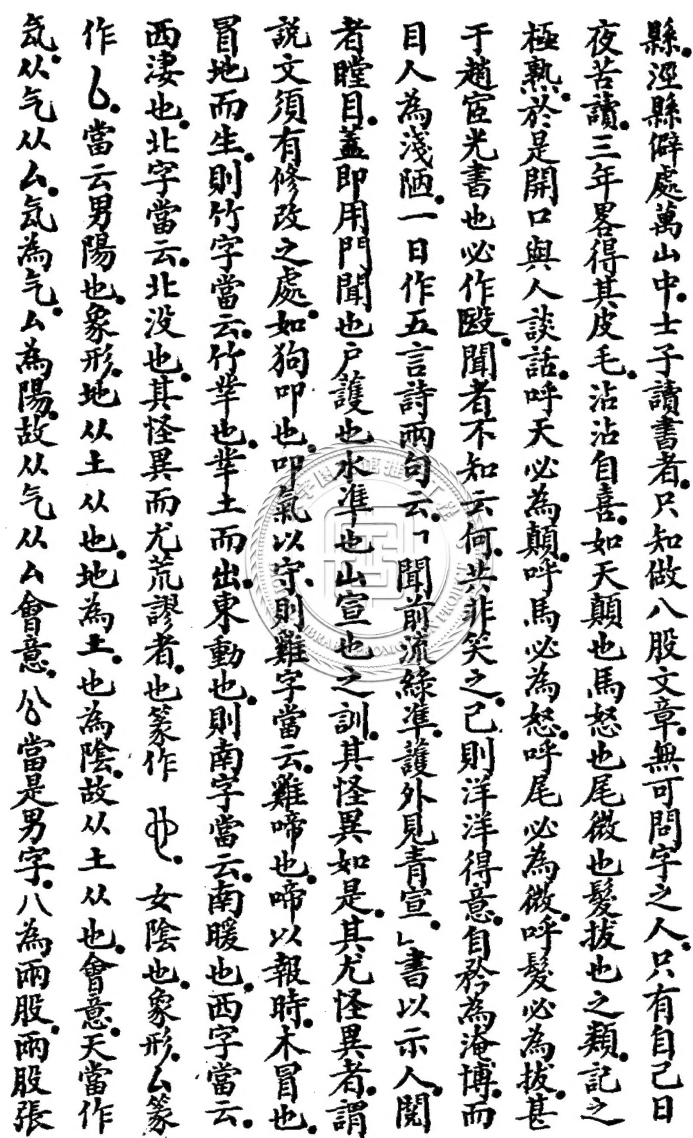 縣。涇縣僻處萬山中。士子讀書者。只知做八股文章。無可問字之人。只有自己日
夜苦讀。三年畧得其皮毛。沾沾自喜。如天顛也馬怒也尾微也髮拔也之類。記之
極熟。於是開口與人談話。呼天必為顛。呼馬必為怒。呼尾必為微。呼髮必為拔。甚
于趙宧光書也必作殹。聞者不知云何。共非笑之。己則洋洋得意。自矜為淹博。而
目人為淺陋。一日作五言詩兩句云。「聞前流綠準。護外見青宣。」書以示人。閱
者瞠目。蓋即用門聞也户護也水準也山宣也之訓。其怪異如是。其尤怪異者。謂
說文須有修改之處。如狗叩也。叩氣以守、則雞字當云。雞啼也。啼以報時。木冒也。
冒地而生。則竹字當云。竹芈也。芈土而出。東動也。則南字當云。南暖也。西字當云。
西淒也。北字當云。北没也。其怪異而尤荒謬者。也篆作 。女陰也。象形。厶篆
作 。當云男陽也。象形。地从土从也。地為土。也為陰。故从土从也。會意。天當作
氖。从气从厶。氖為气。厶為陽。故从气从厶會意。公當是男字。八為兩股。兩股張